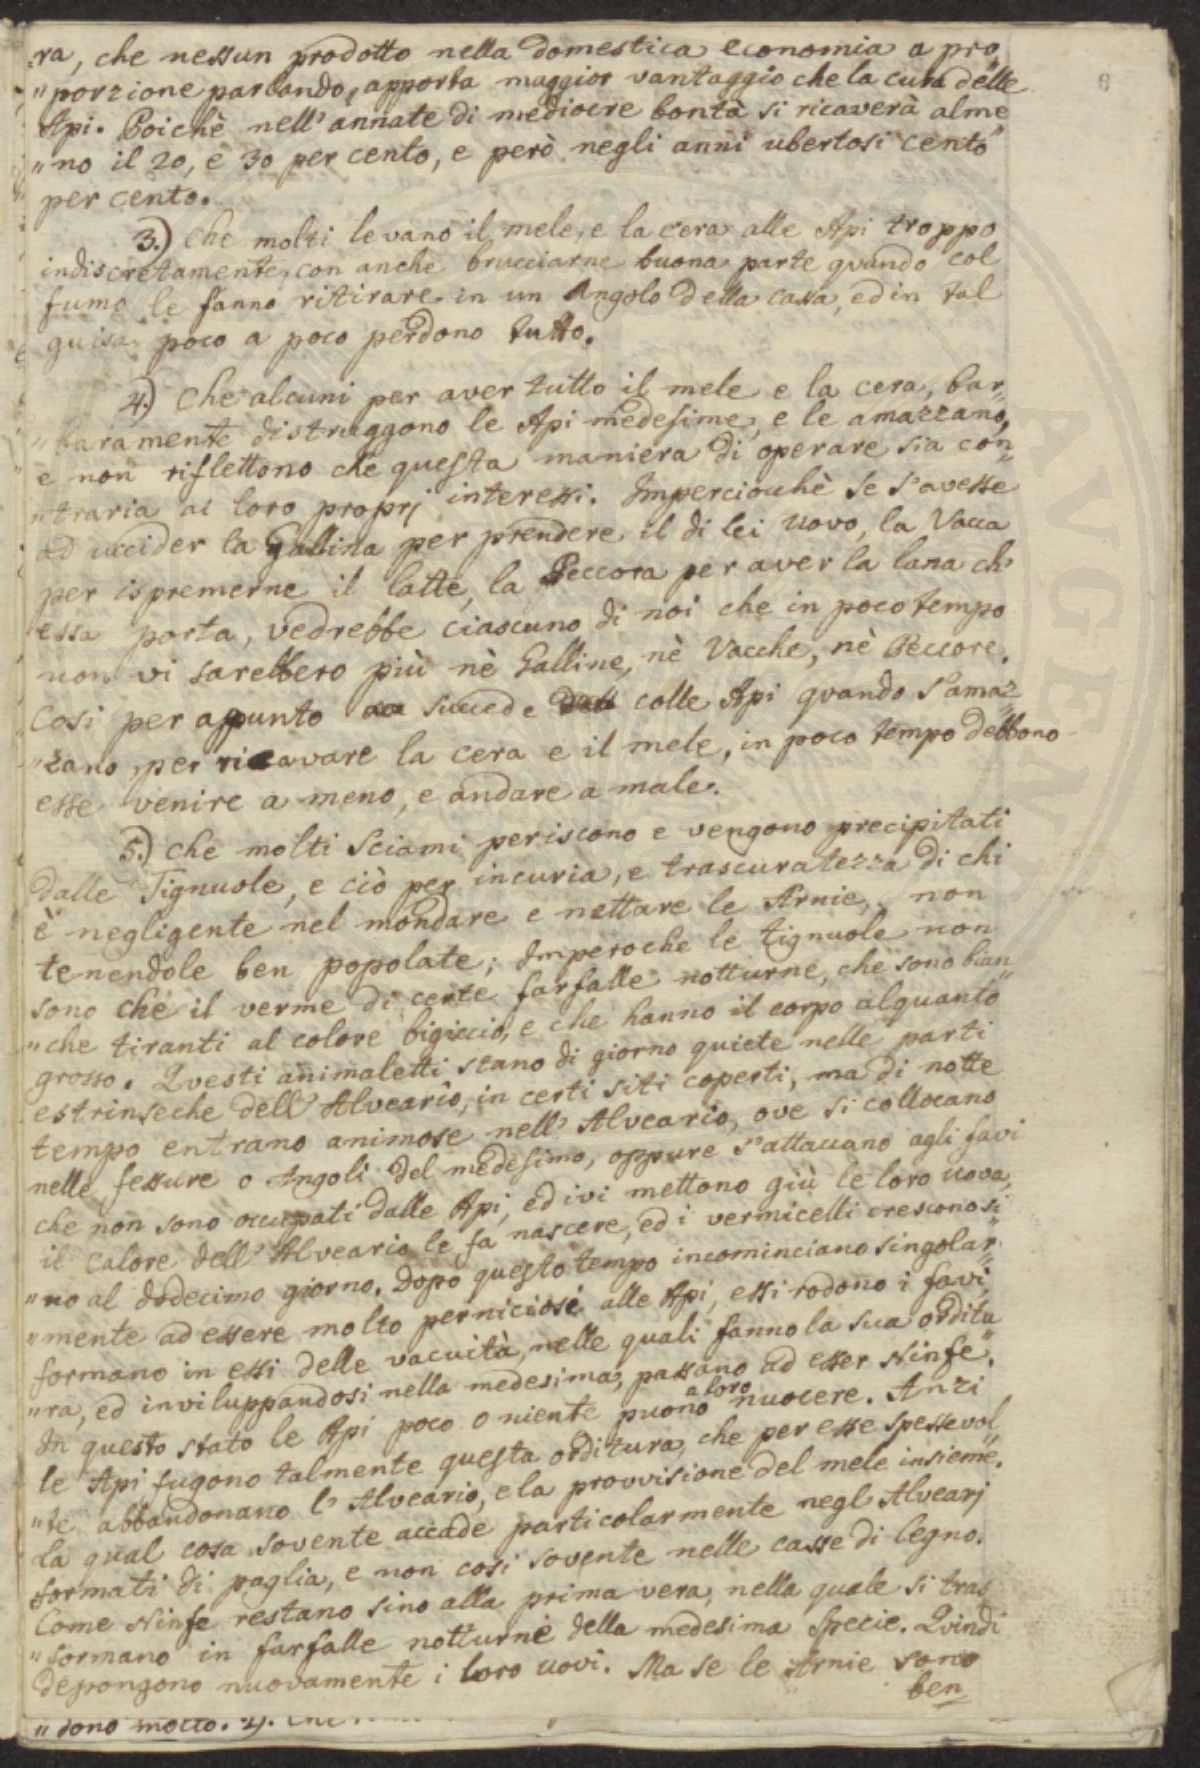 ra, che nessun prodotto nella domestica economia a pro„
„porzione parlando, apporta maggior vantaggio che la cura delle
Api. Poichè nell'annate di mediocre bontà si ricaverà alme„
„no il 20, e 30 per cento, e però negli anni ubertosi cento
per cento.
3.) Che molti levano il mele, e la cera alle Api troppo
indiscretamente, con anche brucciarne buona parte quando col
fumo le fanno ritirare in un Angolo della cassa, ed in tal
guisa poco a poco perdono tutto.
4.) Che alcuni per aver tutto il mele e la cera, bar„
„baramente distruggono le Api medesime, e le amazzano,
e non riflettono che questa maniera di operare sia con„
„traria ai loro proprj interessi. Imperciocchè se s'avesse
ad uccider la Gallina per prendere il di lei uovo, la Vacca
per ispremerne il latte, la Peccora per aver la lana ch'
essa porta, vedrebbe ciascuno di noi che in poco tempo
non vi sarebbero più nè Galline, nè Vacche, nè Peccore.
Così per appunto succede colle Api quando s'amaz„
„zano, per ricavare la cera e il mele, in poco tempo debbono
esse venire a meno, e andare a male.
5.) Che molti Sciami periscono e vengono precipitati
dalle Tignuole, e ciò per incuria, e trascuratezza di chi
è negligente nel mondare e nettare le Arnie, non
tenendole ben popolate; Imperoche le tignuole non
sono che il verme di certe farfalle notturne, che sono bian„
„che tiranti al colore bigiccio, e che hanno il corpo alquanto
grosso. Questi animaletti stano di giorno quiete nelle parti
estrinseche dell'Alveario, in certi siti coperti, ma di notte
tempo entrano animose nell'Alveario, ove si collocano
nelle fessure o Angoli del medesimo, oppure s'attaccano agli favi
che non sono occupati dalle Api, ed ivi mettono giù le loro uova,
il calore dell'Alveario le fa nascere, ed i vermicelli crescono si„
„no al dodecimo giorno. Dopo questo tempo incominciano singolar„
„mente ad essere molto perniciosi alle Api, essi rodono i favi,
formano in essi delle vacuità, nelle quali fanno la sua orditu„
„ra, ed inviluppandosi nella medesima, passano ad esser Ninfe.
In questo stato le Api poco o niente puono a loro nuocere. Anzi
le Api fugono talmente questa orditura, che per esse spessevol„
„te abbandonano l'Alveario, e la provvisione del mele insieme.
La qual cosa sovente accade particolarmente negl'Alvearj
formati di paglia, e non così sovente nelle casse di legno.
Come Ninfe restano sino alla prima vera, nella quale si tras„
„formano in farfalle notturne della medesima specie. Quindi
depongono nuovamente i loro uovi. Ma se le Arnie sono
ben„